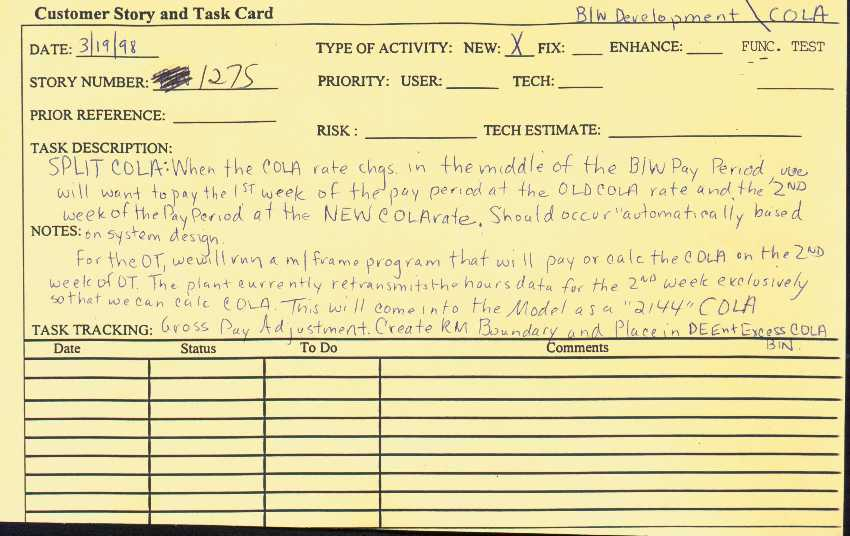 Customer Story and Task Card B/W Development \ COLA
DATE: 3/19/98 TYPE OF ACTIVITY: NEW: X FIX: ENHANCE: FUNC. TEST
STORY NUMBER: 1275 PRIORITY: USER: TECH:
PRIOR REFERENCE:
RISK: TECH ESTIMATE:
TASK DESCRIPTION:
SPLIT COLA: When the COLA rate chgs. in the middle of the B/W Pay Period, we
will want to pay the 1ST week of the pay period at the OLD COLA rate and the 2ND
week of the Pay Period at the NEW COLA rate. Should occur "automatically" based
NOTES: on system design.
For the OT, we will run a m/frame program that will pay or calc the COLA on the 2ND
week of OT. The plant currently retransmits the hours data for the 2ND week exclusively
so that we can calc COLA. This will come into the Model as a "2144" COLA
TASK TRACKING: Gross Pay Adjustment. Create RM Boundary and Place in DEEnt Excess COLA
BIN.
Date Status To Do Comments